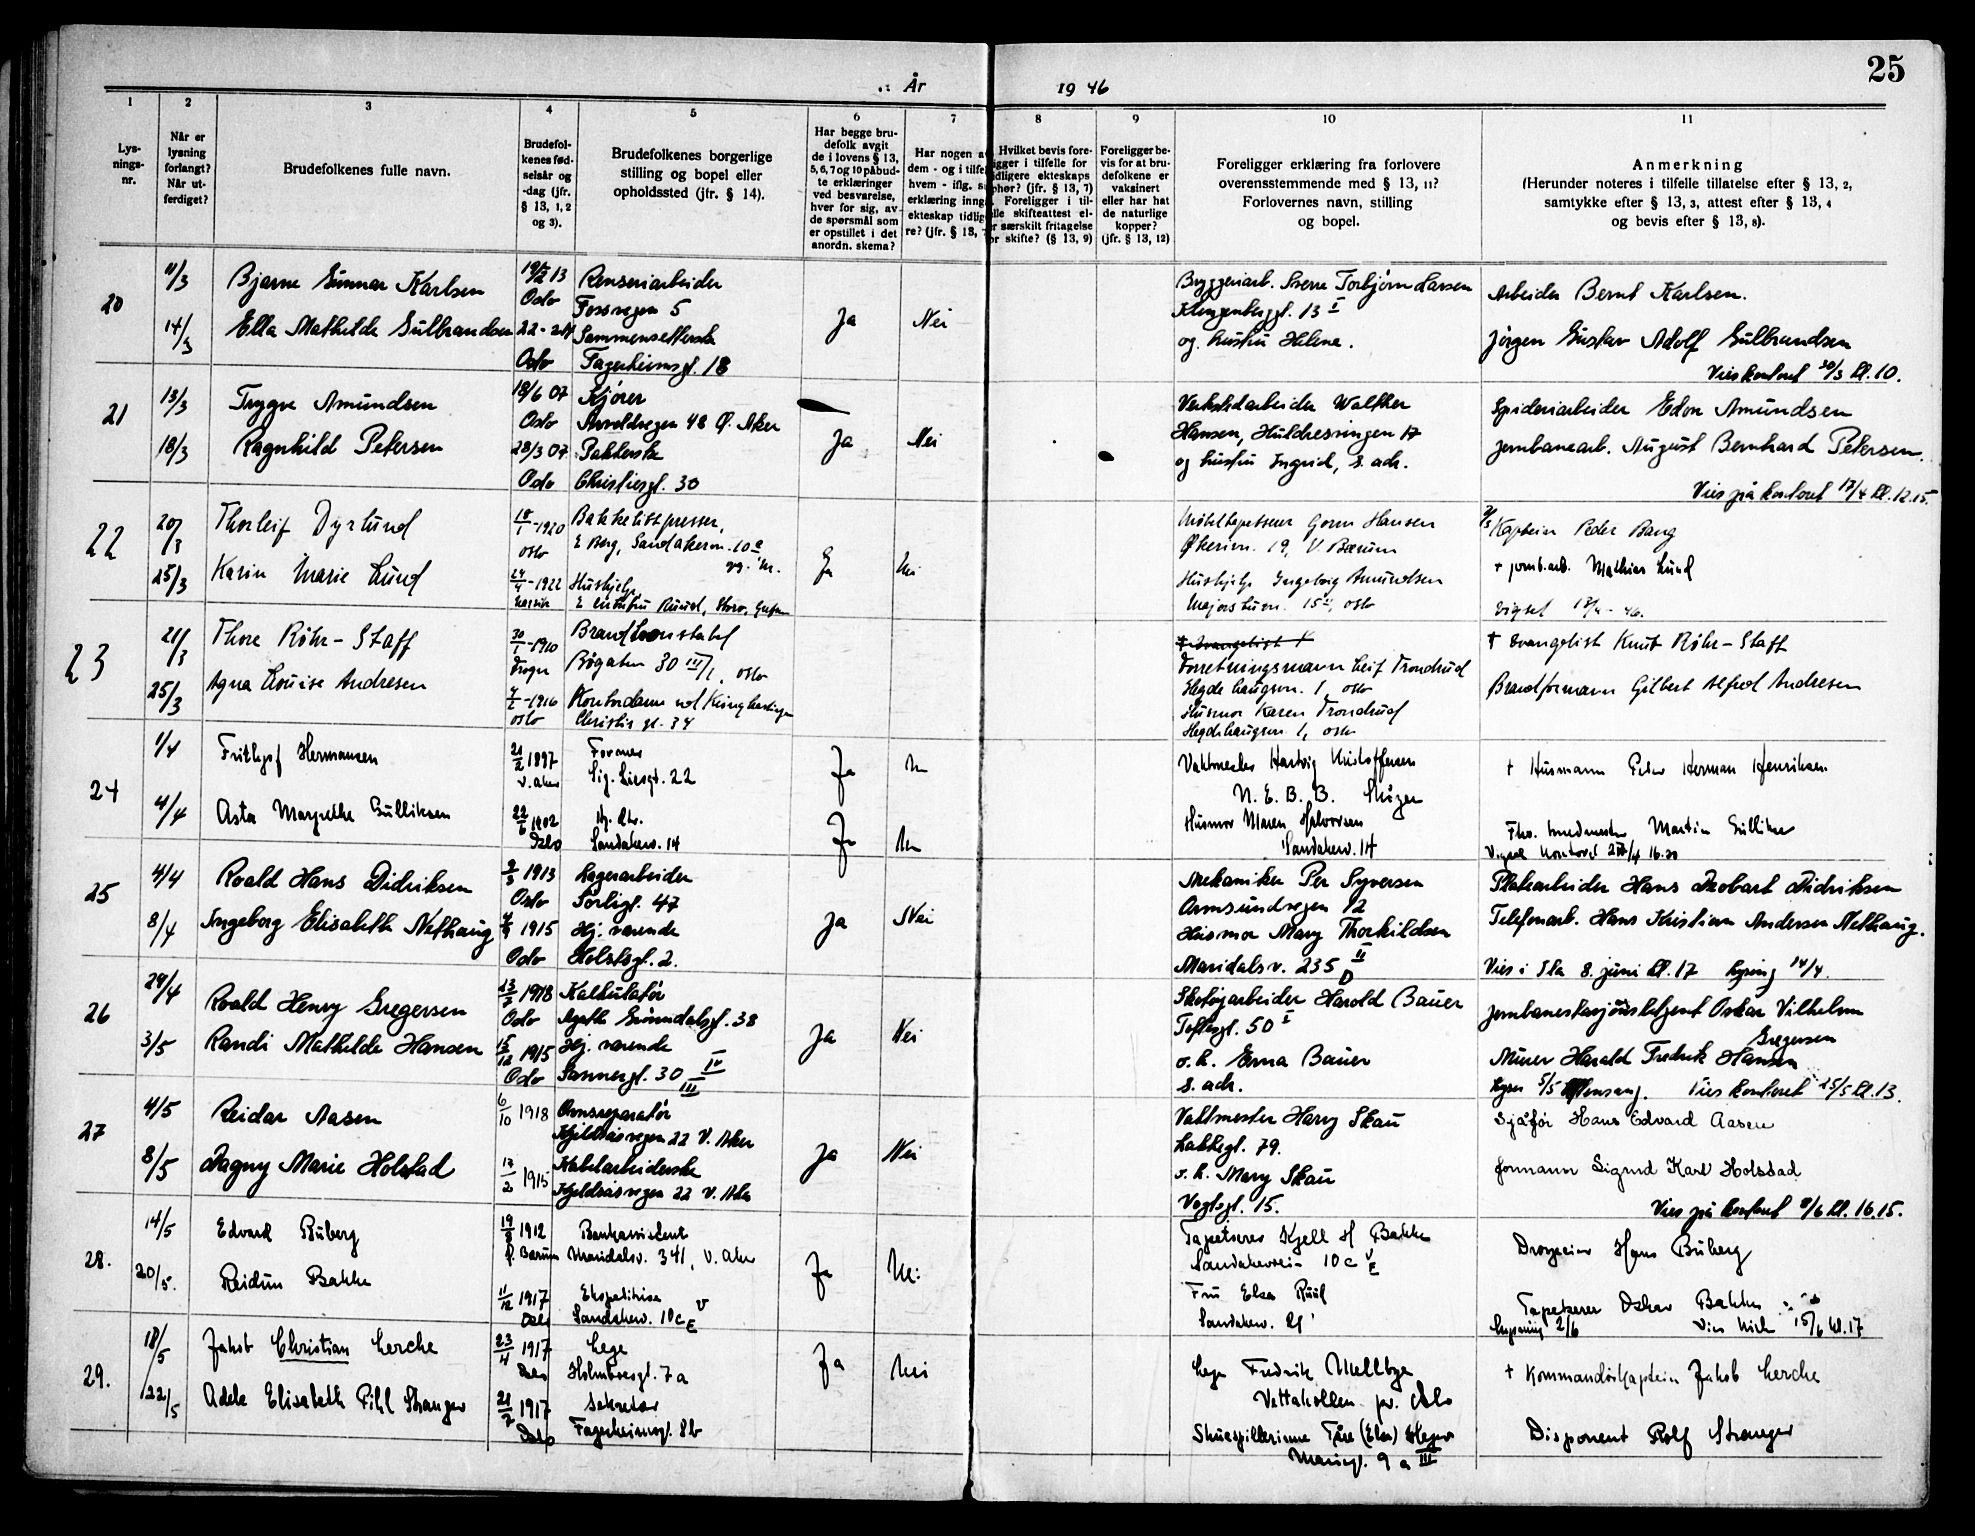 25
År 1946
1
2
3
4
5
6
7
8
9
10
11
Lys-
nings-
nr.
Når er
lysning
forlangt?
Når ut-
ferdiget?
Brudefolkenes fulle navn.
Brudefol-
kenes fød-
selsår og
-dag (jfr.
§ 13, 1, 2
og 3).
Brudefolkenes borgerlige
stilling og bopel eller
opholdssted (jfr. § 14).
Har begge bru-
defolk avgit
de i lovens § 13,
5, 6, 7 og 10 påbud-
te erklæringer
ved besvarelse,
hver for sig, av
de spørsmål som
er opstillet i det
anordn. skema?
Har nogen a
dem - og i tilfel
hvem - iflg. s
erklæring inng
ekteskap tidlig
re? (jfr. § 13,
Hvilket bevis fore-
ligger i tilfelle for
tidligere ekteskaps
ophør? (jfr. § 13, 7)
Foreligger i til-
elle skifteattest el-
r særskilt fritagelse
or skifte? (§ 13, 9)
Foreligger be-
vis for at bru-
defolkene er
vaksinert
eller har hat
de naturlige
kopper?
(jfr. § 13, 12)
Foreligger erklæring fra forlovere
overensstemmende med § 13, 11?
Forlovernes navn, stilling
og bopel.
Anmerkning
(Herunder noteres i tilfelle tillatelse efter § 13, 2,
samtykke efter § 13, 3, attest efter § 13, 4
og bevis efter § 13, 8).
20
11/3
Bjarne Gunnar Karlsen
13
Oslo
Renseriarbeider
Fossvegen 5
14/3
Ella Mathilde Gulbrandsen
Oslo
Sammensetterske
Fagerheimsgt. 18
Ja
Nei
Bryggeriarb. Sverre Torbjørn Larsen
Klingenberggt. 13 I
og hustru Helene.
Arbeider Bernt Karlsen.
Jørgen Gustav Adolf Gulbrandsen
Vies kontoret 30/3 kl. 10.
21
13/3
Trygve Amundsen
19/6 07
Oslo
Kjører
Arvollvegen 48 Ø. Aker
18/3
Ragnhild Petersen
28/3 07
Oslo
Pakkerske
Christiesgt. 30
Ja
Nei
Verkstedarbeider Walther
Hansen, Huldresvingen 17
og hustru Ingrid, s. adr.
Spideriarbeider Edon Amundsen
Jernbanearb. August Bernhard Petersen.
Vies på kontoret 17/4 kl. 12.15.
22
20/3
Thorleif Dyrlund
18/1-1920
Oslo
Bakkelittpresser,
E Berg, Sandakervn. 10 c
25/3
Karin Marie Lund
24/4-1922
Hushjelp,
Ja
Nei
Møbeltapetserer Gorm Hansen
Økernv. 19, V Bærum
Hushjelp Ingeborg Amundsen
Majorstuvn. 15 II, Oslo
Kaptein Peder Bang
+ jernb.arb. Mathias Lund
Vigset 17/4-46.
23
21/3
Thore Röhr-Staff
30/1-1910
Drogn
Brandkonstabel
Bøgaten 30 III/1, Oslo
25/3
Agna Louise Andresen
4/2-1916
Oslo
Kontordame
Christies gt. 34
Forretningsmann Leif Trondrud
Hegdehaugsvn. 1, Oslo
Husmor Karen Trondrud
Hegdehaugsvn. 1, Oslo
+ Evangelist Knut Röhr-Staff
Brandformann Gilbert Alfred Andresen
24
1/4
Frithjof Hermansen
21/2 1897
V. Aker
Former
Sig. Liesgt. 22
4/4
Asta Margrethe Gulliksen
22/6 1902
Oslo
Sandakerv. 14
Ja
Ja
Nei
Nei
Vaktmester Hartvig Kristoffersen
N. E. B. B. Skøyen
Husmor Maren Halvorsen
Sandakerv. 14
+ Husmann Peder Herman Henriksen
Martin Gulliksen
16.30
25
4/4
Roald Hans Didriksen
3/3 1913
Oslo
Lagerarbeider
Sørligt. 47
8/4
Ingeborg Elisabeth Nethaug
1915
Oslo
Hj. værende
Holstsgt. 2.
Ja
Nei
Mekaniker Per Syversen
Ormsundvegen 12
Husmor Mary Thorkildsen
Maridalsv. 235 II D
Platearbeider Hans Hobart Didriksen
Telefonarb. Hans Kristian Andersen Nethaug.
Vies i Ila 8. juni kl. 17 Lysning 14/4.
26
29/4
Roald Henry Gregersen
13/7 1918
Oslo
Kalkulatør
Agathe Grøndalsgt. 38
3/5
Randi Mathilde Hansen
15/12 1915
Oslo
Hj. værende
Sannergt. 30
Ja
Nei
Skotøyarbeider Harald Bauer
Toftesgt. 50 I
o. h. Erna Bauer
s. adr.
Jernbaneekspeditør Oskar Vilhelm
Gregersen
Murer Harald Fredrik Hansen
Lyser 5/5 Vies kontoret 25/5 kl. 13.
27
4/5
Reidar Aasen
6/10 1918
Ovnsreparatør
Kjelsåsvegen 22 V. Aker
8/5
Dagny Marie Holstad
17/2 1915
Kabelarbeiderske
Kjelsåsvegen 22 V. Aker
Ja
Nei
Vaktmester Harry Skau
Lakkegt. 79.
o. h. Mary Skau
Vogtsgt. 15.
Sjåfør Hans Edvard Aasen
Formann Sigurd Karl Holstad
Vies på kontoret 8/6 kl. 16.15.
28.
14/5
Edvard Ruberg
19/8 1912
Ø. Bærum
Bankassistent
Maridalsv. 341, V. Aker
20/5.
Reidun Bakke
11/12 1917
Oslo
Ekspeditrise
Sandakerv. 10 c V E
Ja
Nei
Tapetserer Kjell H Bakke
Sandakerveien 10 c V E
Fru Elsa Ruud
Sandakerv.
Drosjeeier Hans Ruberg
Tapetserer Oskar Bakke
Lysning 2/6 Vies kirke 15/6 kl. 17
29.
18/5
Jakob Christian Lerche
23/4 1917
Oslo
Lege
Holmboesgt. 7 a
22/5
Adele Elisabeth Pihl Stranger
21/7 1917
Oslo
Sekretær
Fagerheimsgt. 8 b
Ja
Nei
Lege Fredrik Mellbye
Vettakollen pr. Oslo
Skuespillerinne Tåre (Elsa)
9 a III
+ Kommandørkaptein Jakob Lerche
Disponent Rolf Stranger